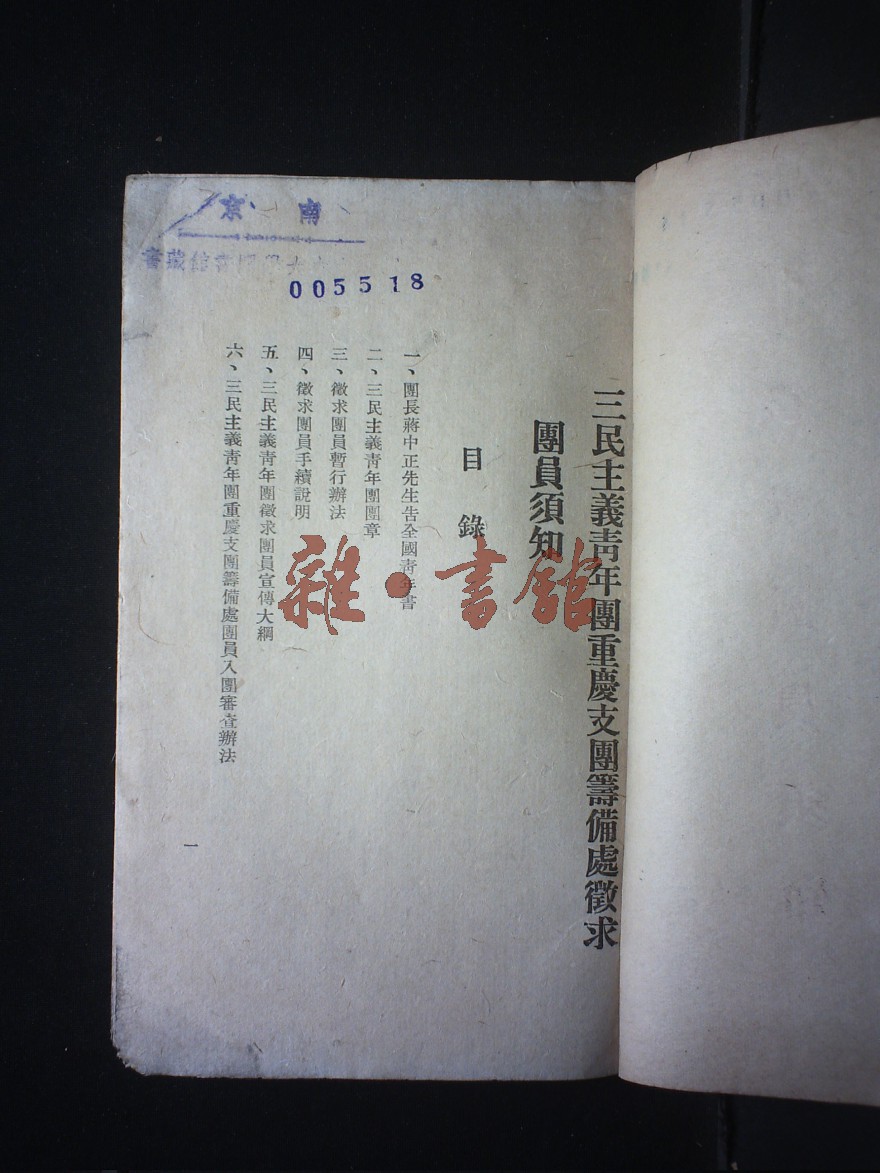 南京
005518
三民主義青年團重慶支團籌備處徵求
團員須知
目錄
一、團長蔣中正先生告全國青年書
二、三民主義青年團團章
三、徵求團員暫行辦法
四、徵求團員手續說明
五、三民主義青年團徵求團員宣傳大綱
六、三民主義青年團重慶支團籌備處團員入團審查辦法
一
雜·書館